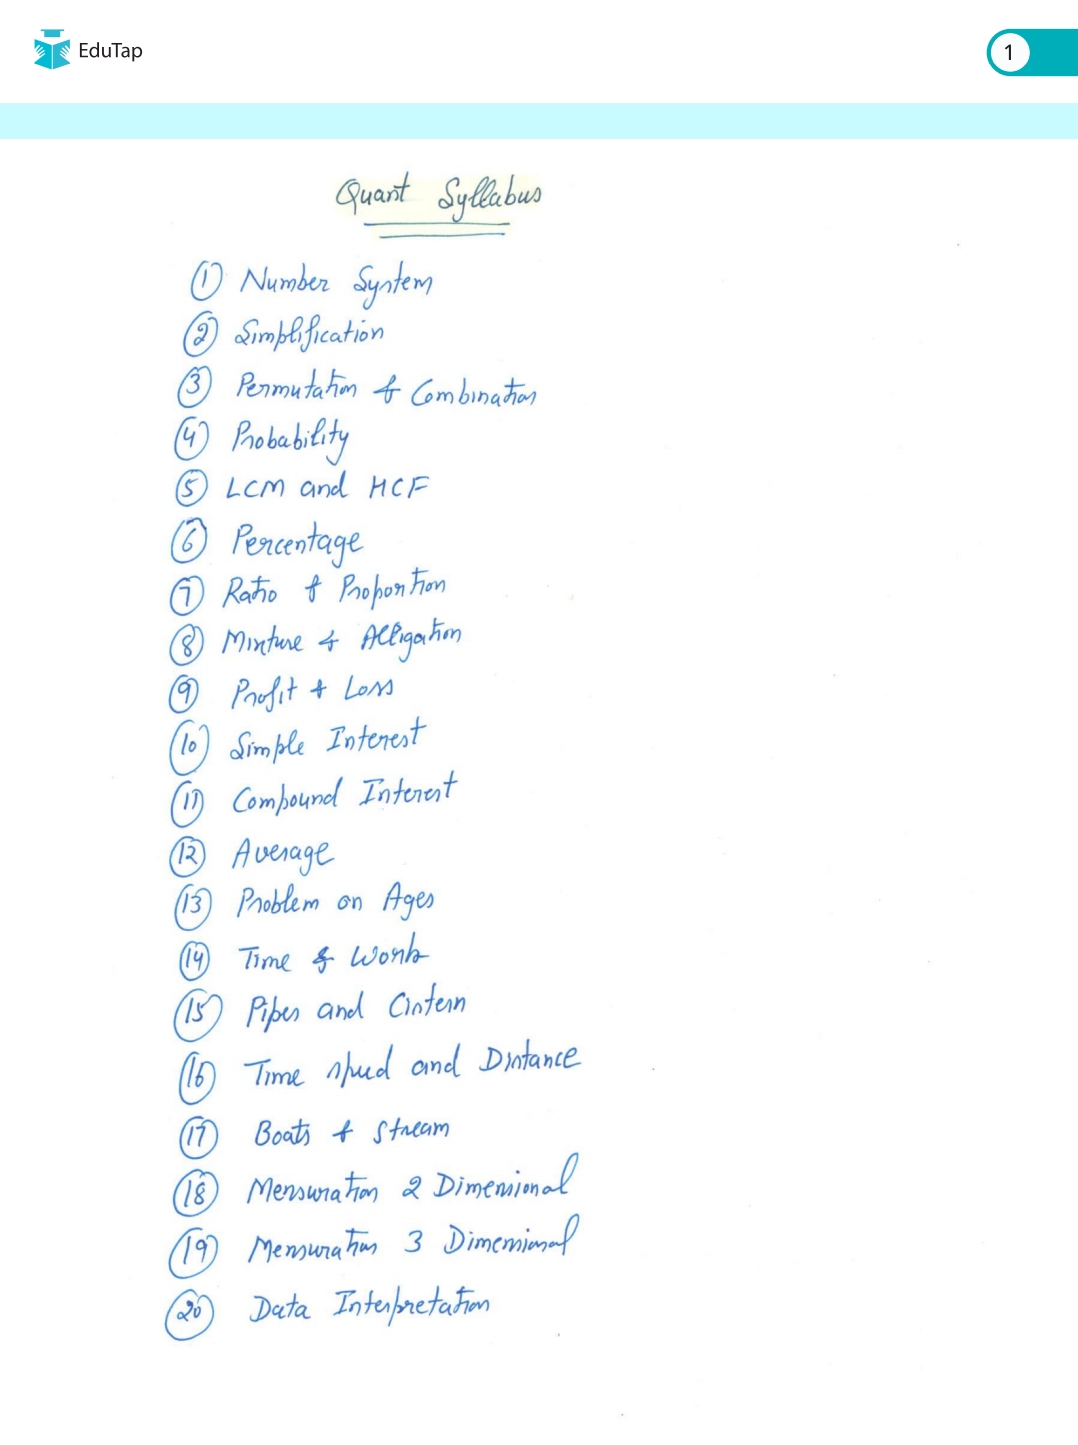 EduTap
1
Quant Syllabus
1 Number System
2 Simplification
3 Permutation & Combination
4 Probability
5 LCM and HCF
6 Percentage
7 Ratio & Proportion
8 Mixture & Alligation
9 Profit & Loss
10 Simple Interest
11 Compound Interest
12 Average
13 Problem on Ages
14 Time & Work
15 Pipes and Cistern
16 Time speed and Distance
17 Boats & Stream
18 Mensuration 2 Dimensional
19 Mensuration 3 Dimensional
20 Data Interpretation